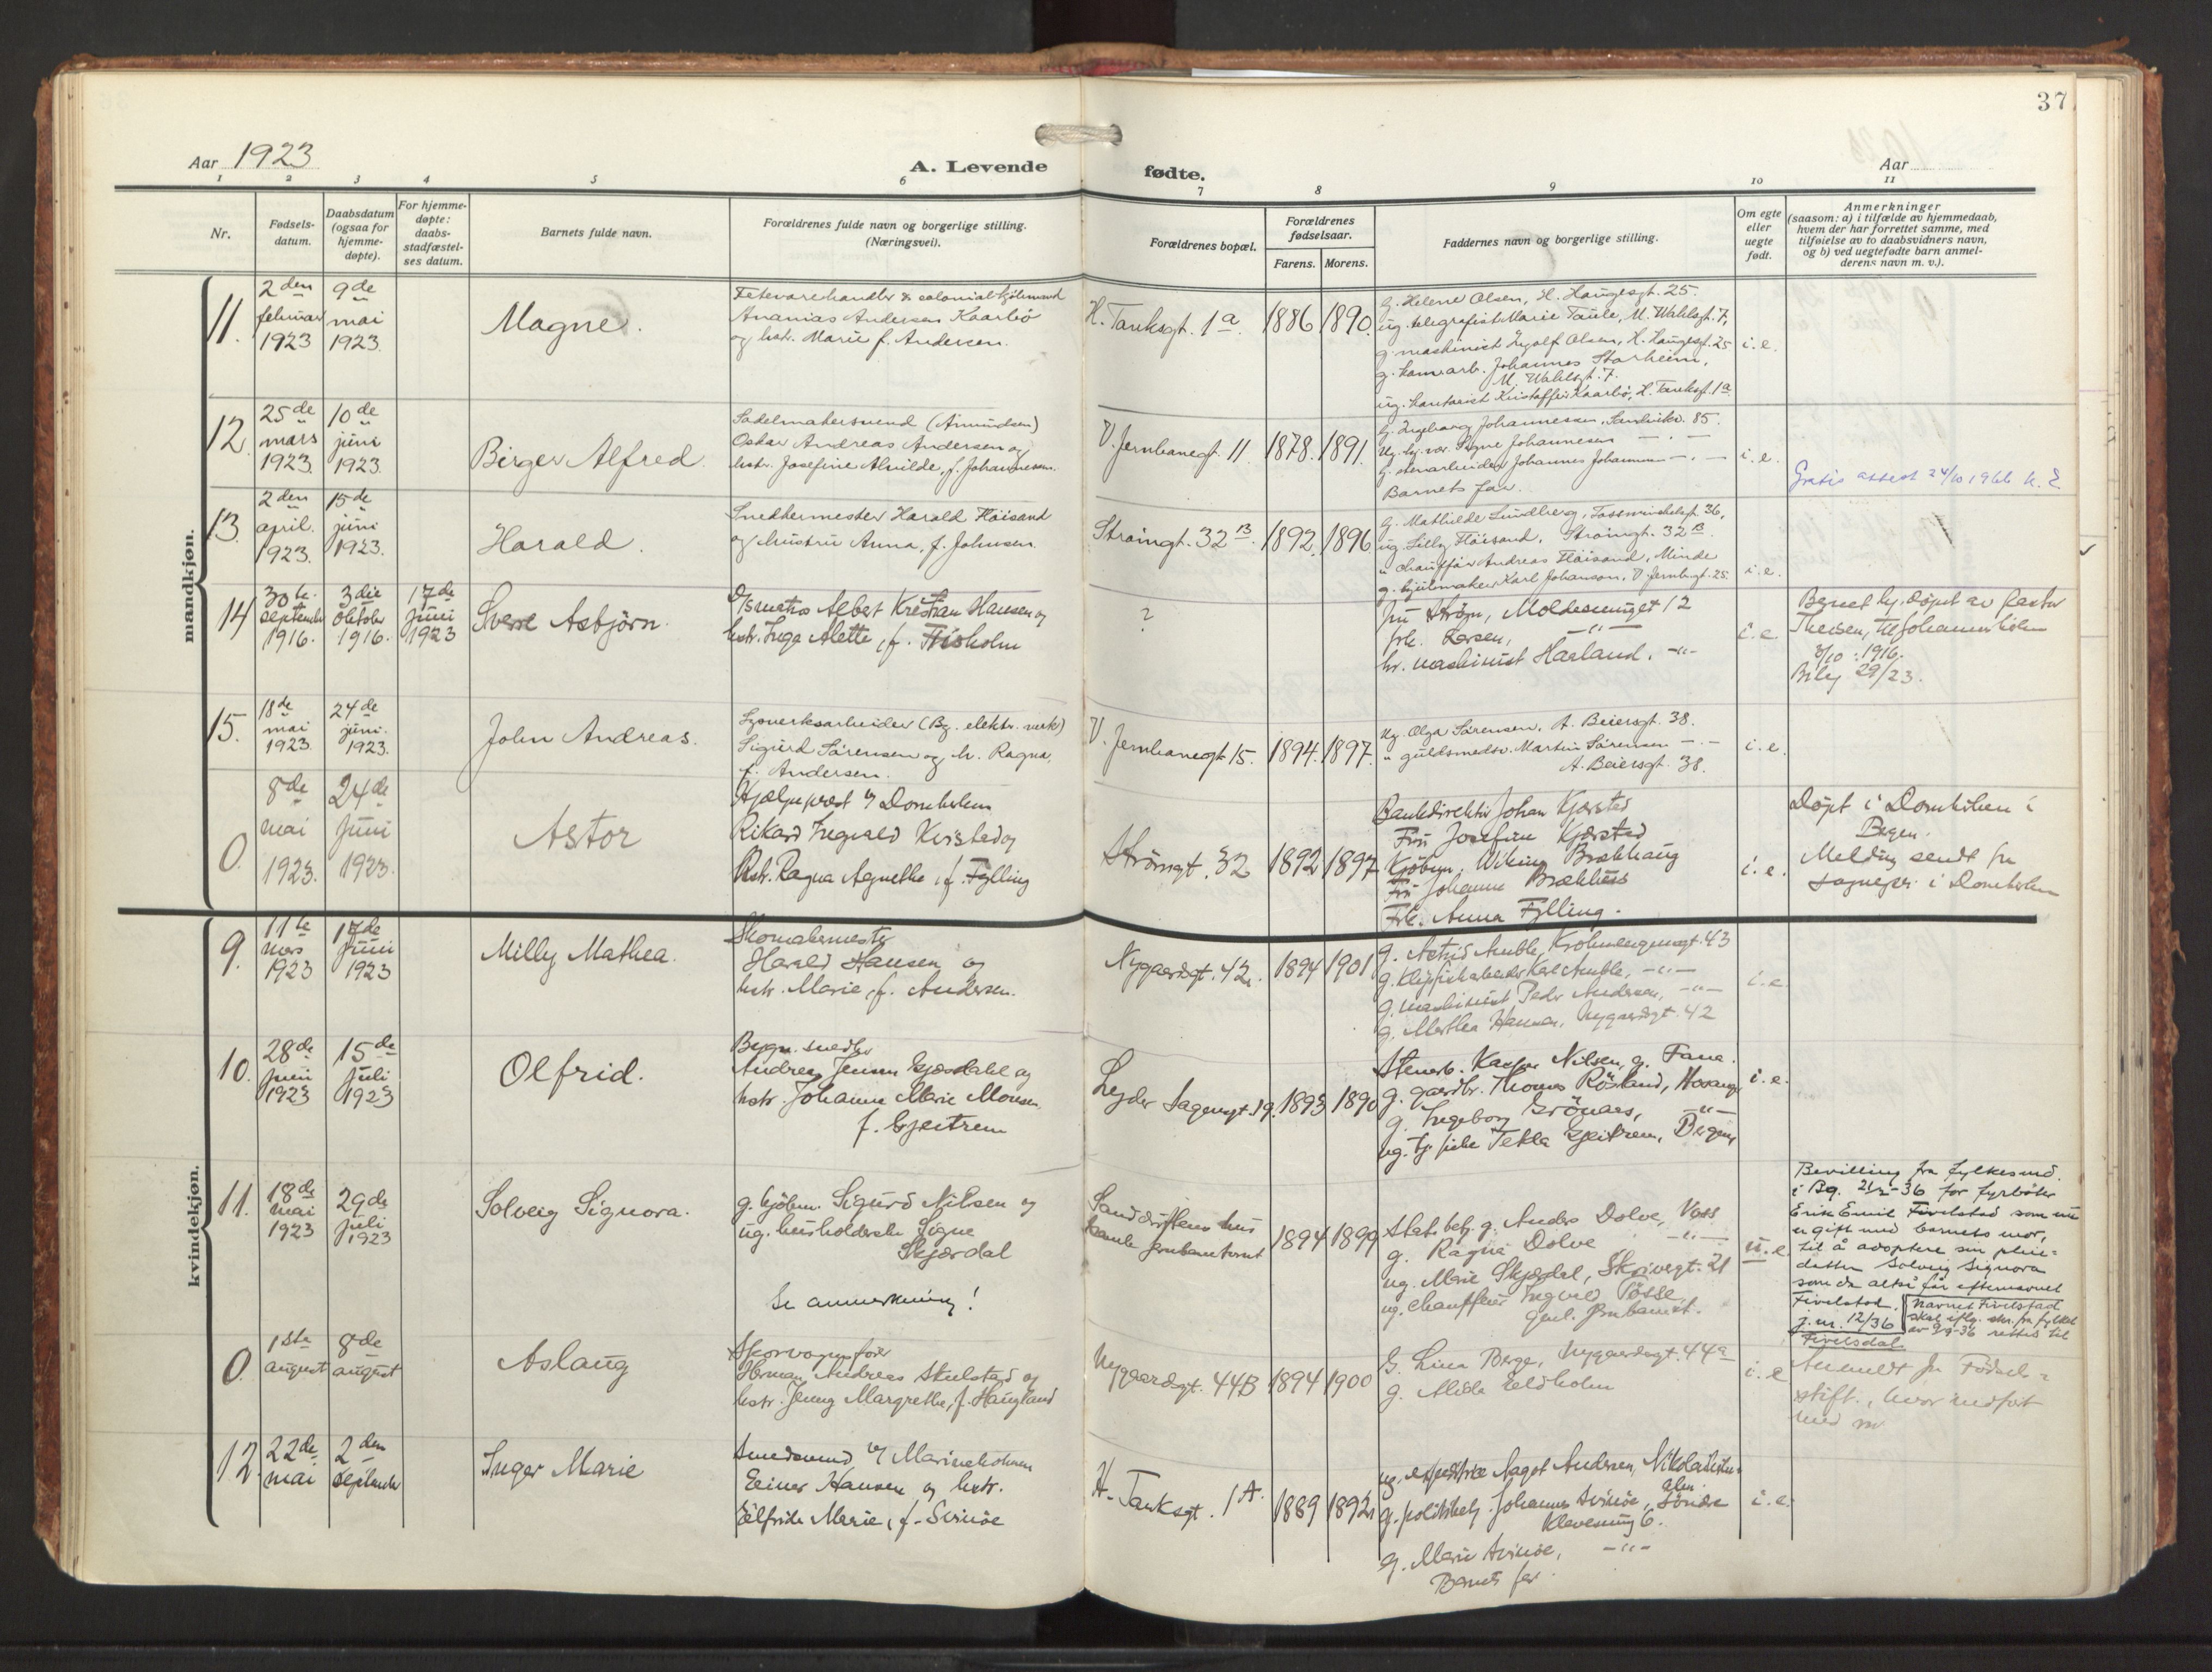 37
Aar 1923
A. Levende
fødte.
Aar
1 2 3 4 5 6 7 8 9 10 11
Nr.
Fødsels-
datum.
Daabsdatum
(ogsaa for
hjemme-
døpte).
For hjemme-
døpte:
daabs-
stadfæstel-
ses datum.
Barnets fulde navn.
Forældrenes fulde navn og borgerlige stilling.
(Næringsvei).
Forældrenes bopæl.
Forældrenes
fødselsaar.
Farens. Morens.
Faddernes navn og borgerlige stilling.
Om egte
eller
uegte
født.
Anmerkninger
(saasom: a) i tilfælde av hjemmedaab,
hvem der har forrettet samme, med
tilføielse av to daabsvidners navn,
og b) ved uegtefødte barn anmel-
derens navn m. v.).
mandkjøn.
11.
2den
februar
1923
9de
mai
1923.
Magne.
Fetevarehandler & colonial kjøbmand
Ananias Andersen Kaarbö
og hstr. Marie f. Andersen.
H. Tanksgt. 1a.
1886 1890.
G. Helene Olsen, H. Haugesgt. 25.
ug. telegrafist Marie Taule, M. Wahlsgt. 7,
g. maskinist Ingolf Olsen, H. Haugesgt. 25
g. kom. arb. Johannes Storheim,
M. Wahlsgt. 7.
ug. kontorist Kristoffer Kaarbö, H. Tanksgt. 1a.
i. e.
12.
25de
mars
1923.
10de
juni
1923.
Birger Alfred.
Sadelmakersvend (Amundsen)
Oskar Andreas Andersen og
hstr. Josefine Alvilde, f. Johannesen.
V. Jernbanegt. 11
1878. 1891.
G. Ingeborg Johannessen, Sandvikv. 85.
Ug. Signe Johannesen — " —
G. stenarbeider Johannes Johannesen — " —
Barnets far.
i. e.
Gratis attest 24/10 1966
13.
2den
april.
1923.
15de
juni
1923.
Harald.
Snedkermester Harald Flöisand
og hustru Anna, f. Johnsen.
Strömgt. 32B.
1892. 1896
G. Mathilde Lundberg, 36,
ug. Lilly Flöisand, Strömgt. 32B.
" chaufför Andreas Flöisand, Minde
g. hjulmaker Karl Johanson, V. Jernbgt. 25.
i. e.
14
30te
september
1916.
3die
oktober
1916.
17de
juni
1923
Sverre Asbjörn.
Albert Kristian Hansen og
hstr. Inga Alette, f. Fisholm
?
fru Ström, 12
frk. Larsen, — " —
hr. maskinist Haaland. — " —
i. e.
Barnet hj. döpt av pastor
Theisen,
3/10 1916.
Bileg 29/23.
15.
18de
mai
1923.
24de
juni.
1923.
John Andreas.
Lysverksarbeider (Bg. elektr. verk)
Sigurd Sörensen og h. Ragna,
f. Andersen.
V. Jernbanegt. 15.
1894. 1897.
Ug. Olga Sörensen, A. Beiersgt. 38.
" guldsmedsv. Martin Sörensen — " —
A. Beiersgt. 38.
i. e.
0
8de
mai
1923.
24de
juni
1923.
Astor
Hjælpeprest v/ Domkirken
Rikard Ingvald Kvistad og
hstr. Ragna Agnethe, f. Fylling
Strömgt. 32
1892 1897
Bankdirektör Johan Kjørstad
Fru Josefine Kjørstad
Kjöbm. Wiking Brækhaug
Fru Johanne Brækhus
Frk. Anna Fylling.
i. e.
Döpt i Domkirken i
Bergen.
Melding sendt fra
sognepr. i Domkirken
kvindekjøn.
9.
11te
mars
1923
17de
juni
1923
Milly Mathea.
Skomakermester
Harald Hansen og
hstr. Marie, f. Andersen.
Nygaardsgt. 42.
1894 1901
g. Astrid Amble, Krohnengensgt. 43
g. Karl Amble, — " —
g. maskinist Peder Andersen, — " —
g. Marthea Hansen, Nygaardsgt. 42
i. e.
10.
28de
juni
1923
15de
juli
1923
Olfrid.
Bygn. snedker
Andreas Jensen Gjesdahl og
hstr. Johanne Marie Monsen,
f. Gjeitrem
Leyder Sagensgt. 19.
1893 1890
Stenarb. Kaspar Nilsen, g. Fana.
g. gaardbr. Thomas Rösland, Hosanger
g. Ingeborg Grönaas, — " —
ug. tj. pike Tekla Gjeitrem, Bergen
i. e.
11.
18de
mai
1923
29de
juli
1923
Solveig Signora.
g. kjöbm. Sigurd Nilsen og
ug. husholderske Signe
Skjærdal
Se anmerkning!
Sanddriftens hus
Gamle jernbanetomt
1894 1899
Stats. betj. g. Anders Dolve, Voss
g. Ragna Dolve — " —
ug. Marie Skjerdal, Skrivergt. 21
ug. chauffeur Ingvald Fosse,
Gml. jernbanest.
u. e.
Bevilling fra fylkesmd.
i Bg. 21/2-36 for fyrböter
Erik Emil Fivelstad som nu
er gift med barnets mor,
til å adoptere sin pleie-
datter Solveig Signora
som da altså får efternavnet
Fivelstad.
j.nr. 12/36
Navnet Fivelstad
skal iflg. skr. fra fylket
av 9/3-36 rettes til
Fivelsdal.
0
1ste
august
8de
august
Aslaug
Skorvognsförer
Herman Andreas Skulstad og
hstr. Jenny Margrethe, f. Haugland
Nygaardsgt. 44B
1894 1900
G. Lina Berge, Nygaardsgt. 44a
g. Alida Eldholm
i. e.
Anmeldt fra Födsels-
stift., hvor indfört
med nr
12.
22de
mai
2den
september
Inger Marie
Smedsvend v/ Marineholmen
Einar Hansen og hstr.
Elfride Marie, f. Svinöe
H. Tanksgt. 1A.
1889 1892
ug. expeditrice Aagot Andersen, Nikolaikirke-
alm.
g. politibetj. Johannes Svinöe, Söndre
Klevesmug 6.
g. Marie Svinöe, — " —
Barnets far.
i. e.